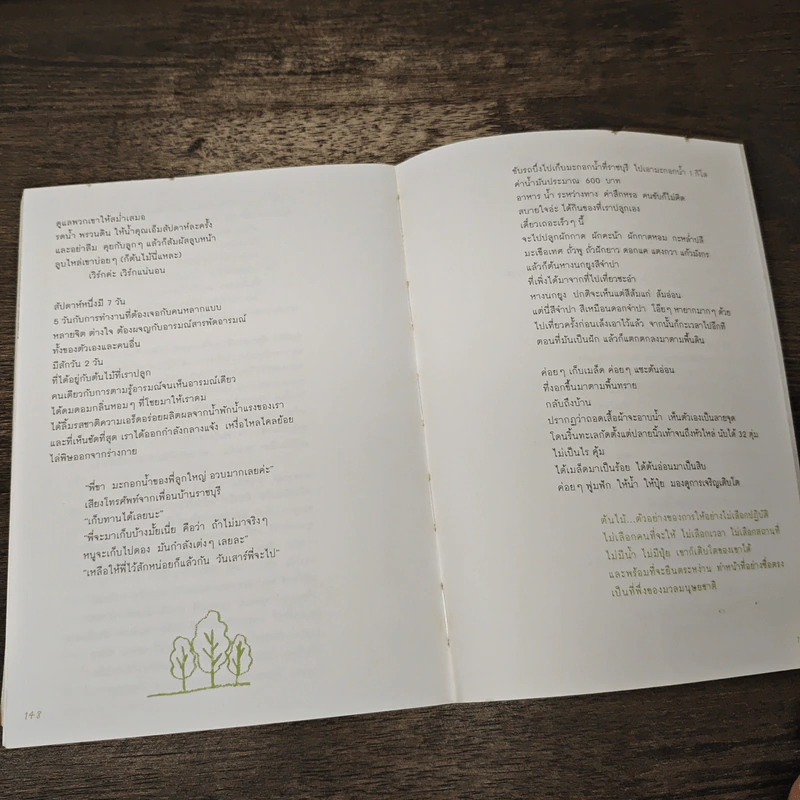 ดูแลพวกเขาให้สม่ำเสมอ
รดน้ำ พรวนดิน ให้น้ำคุณเอ็มสัปดาห์ละครั้ง
และอย่าลืม คุยกับลูกๆ แล้วก็สัมผัสลูบหน้า
ลูบไหล่เขาบ่อยๆ (ก็ต้นไม้นี่แหละ)
เวิร์กค่ะ เวิร์กแน่นอน
สัปดาห์หนึ่งมี 7 วัน
5 วันกับการทำงานที่ต้องเจอกับคนหลากแบบ
หลายจิต ต่างใจ ต้องผจญกับอารมณ์สารพัดอารมณ์
ทั้งของตัวเองและคนอื่น
มีสักวัน 2 วัน
ที่ได้อยู่กับต้นไม้ที่เราปลูก
คนเดียวกับการตามรู้อารมณ์จนเห็นอารมณ์เดียว
ได้ดมดอมกลิ่นหอมๆ ที่โชยมาให้เราดม
ได้ลิ้มรสชาติความเอร็ดอร่อยผลิตผลจากน้ำพักน้ำแรงของเรา
และที่เห็นชัดที่สุด เราได้ออกกำลังกลางแจ้ง เหงื่อไหลไคลย้อย
ไล่พิษออกจากร่างกาย
"พี่ขา มะกอกน้ำของพี่ลูกใหญ่ อวบมากเลยค่ะ"
เสียงโทรศัพท์จากเพื่อนบ้านราชบุรี
"เก็บทานได้เลยนะ"
"พี่จะมาเก็บบ้างมั้ยเนี่ย คือว่า ถ้าไม่มาจริงๆ
หนูจะเก็บไปดอง มันกำลังเต่งๆ เลยละ"
"เหลือให้พี่ไว้สักหน่อยก็แล้วกัน วันเสาร์พี่จะไป"
148
ขับรถบึ่งไปเก็บมะกอกน้ำที่ราชบุรี ไปเอามะกอกน้ำ 1 กิโล
ค่าน้ำมันประมาณ 600 บาท
อาหาร น้ำ ระหว่างทาง ค่าสึกหรอ คนขับก็ไม่คิด
สบายใจอ่ะ ได้กินของที่เราปลูกเอง
เดี๋ยวเถอะเร็วๆ นี้
จะไปปลูกผักกาด ผักคะน้า ผักกาดหอม กะหล่ำปลี
มะเขือเทศ ถั่วพู ถั่วฝักยาว ดอกแค แตงกวา แก้วมังกร
แล้วก็ต้นหางนกยูงสีจำปา
ที่เพิ่งได้มาจากที่ไปเที่ยวชะอำ
หางนกยูง ปกติจะเห็นแต่สีส้มแก่ ส้มอ่อน
แต่นี่สีจำปา สีเหมือนดอกจำปา โอ๊ยๆ หายากมากๆ ด้วย
ไปเที่ยวครั้งก่อนเล็งเอาไว้แล้ว จากนั้นก็กะเวลาไปอีกที
ตอนที่มันเป็นฝัก แล้วก็แตกตกลงมาตามพื้นดิน
ค่อยๆ เก็บเมล็ด ค่อยๆ แซะต้นอ่อน
ที่งอกขึ้นมาตามพื้นทราย
กลับถึงบ้าน
ปรากฏว่าถอดเสื้อผ้าจะอาบน้ำ เห็นตัวเองเป็นลายจุด
โดนริ้นทะเลกัดตั้งแต่ปลายนิ้วเท้าจนถึงหัวไหล่ นับได้ 32 ตุ่ม
ไม่เป็นไร คุ้ม
ได้เมล็ดมาเป็นร้อย ได้ต้นอ่อนมาเป็นสิบ
ค่อยๆ พูมฟัก ให้น้ำ ให้ปุ๋ย มองดูการเจริญเติบโต
ต้นไม้...ตัวอย่างของการให้อย่างไม่เลือกปฏิบัติ
ไม่เลือกคนที่จะให้ ไม่เลือกเวลา ไม่เลือกสถานที่
ไม่มีน้ำ ไม่มีปุ๋ย เขาก็เติบโตของเขาได้
และพร้อมที่จะยืนตระหง่าน ทำหน้าที่อย่างซื่อตรง
เป็นที่พึ่งของมวลมนุษยชาติ